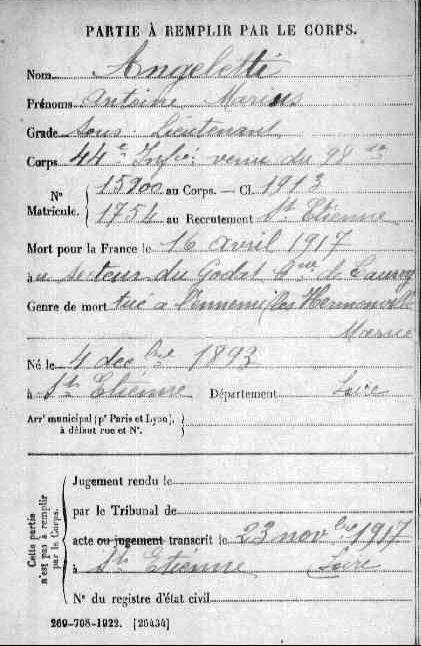 PARTIE À REMPLIR PAR LE CORPS.
Nom Angeletti
Prénoms Antoine Marius
Grade Sous-Lieutenant
Corps 44e Infie venu du 98
N° Matricule. 15900 au Corps. — Cl. 1913
1754 au Recrutement St Etienne
Mort pour la France le 16 avril 1917
au secteur du Godat de
Genre de mort tué à l'ennemi Hermonville
Marne
Né le 4 decbre 1893
à St Etienne Département Loire
Arrt municipal (pr Paris et Lyon), à défaut rue et N°.
Cette partie n'est pas à remplir par le Corps.
Jugement rendu le
par le Tribunal de
acte ou jugement transcrit le 23 novbre 1917
à St Etienne Loire
N° du registre d'état civil
269-708-1922. [26434]